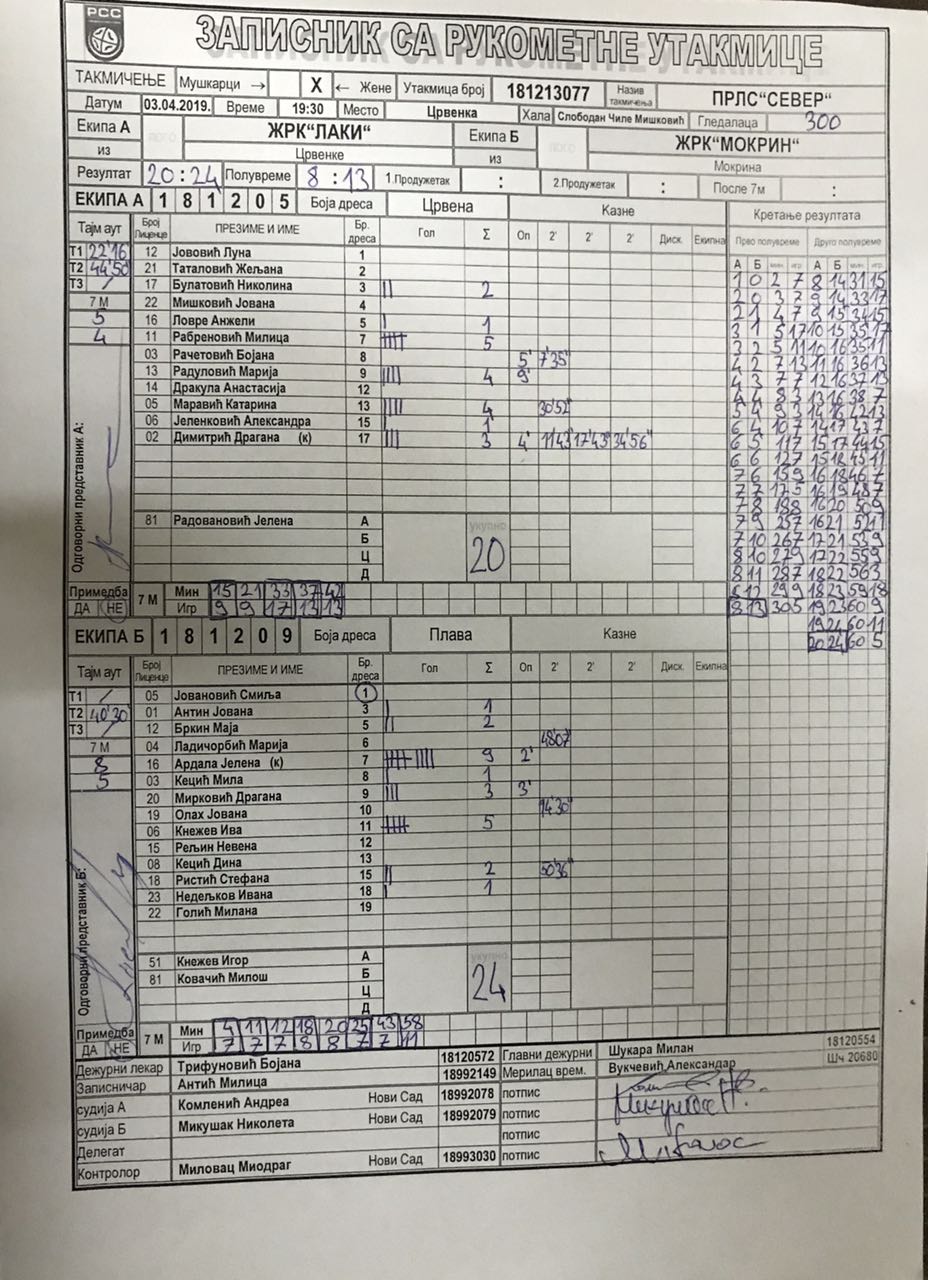 РСС
ЗАПИСНИК СА РУКОМЕТНЕ УТАКМИЦЕ
ТАКМИЧЕЊЕ Мушкарци → X ← Жене Утакмица број 181213077 Назив такмичења ПРЛС“СЕВЕР“
Датум 03.04.2019. Време 19:30 Место Црвенка Хала Слободан Чиле Мишковић Гледалаца 300
Екипа А ЖРК“ЛАКИ“ Екипа Б ЖРК“МОКРИН“
из Црвенке из Мокрина
Резултат 20:24 Полувреме 8:13 1.Продужетак : 2.Продужетак : После 7м :
ЕКИПА А 1 8 1 2 0 5 Боја дреса Црвена Казне Кретање резултата
Тајм аут Број Лиценце ПРЕЗИМЕ И ИМЕ Бр. дреса Гол Σ Оп 2' 2' 2' Диск. Екипна Прво полувреме Друго полувреме
А Б мин игр А Б мин игр
Т1 22'16" 12 Јововић Луна 1
Т2 44'50" 21 Таталовић Жељана 2
Т3 / 17 Булатовић Николина 3 || 2
7 М 22 Мишковић Јована 4
5 16 Ловре Анжели 5 | 1
4 11 Рабреновић Милица 7 5
03 Рачетовић Бојана 8 5' 7'35"
13 Радуловић Марија 9 |||| 4 9'
14 Дракула Анастасија 12
05 Маравић Катарина 13 |||| 4 30'52"
06 Јеленковић Александра 15 | 1
02 Димитрић Драгана (к) 17 ||| 3 4' 11'43" 17'43" 34'56"
Одговорни представник А:
81 Радовановић Јелена А укупно 20
Б
Ц
Д
1 0 2 7 8 14 31 15
2 0 3 7 9 14 33 17
2 1 4 7 9 15 34 15
3 1 5 17 10 15 35 17
3 2 5 11 10 16 35 11
4 2 7 13 11 16 36 13
4 3 7 7 12 16 37 13
4 4 8 3 13 16 38 7
5 4 9 3 14 16 42 13
6 4 10 7 14 17 43 7
6 5 11 7 15 17 44 15
6 6 12 7 15 18 45 11
7 6 15 9 16 18 46 7
7 7 17 5 16 19 48 7
7 8 18 8 16 20 50 9
7 9 25 7 16 21 52 11
7 10 26 7 17 21 53 9
8 10 27 9 17 22 55 9
8 11 28 7 18 22 56 3
8 12 29 9 18 23 59 18
8 13 30 5 19 23 60 9
19 24 60 11
20 24 60 5
Примедба 7 М Мин 15 21 33 37 42
ДА НЕ Игр 9 9 17 13 13
ЕКИПА Б 1 8 1 2 0 9 Боја дреса Плава Казне
Тајм аут Број Лиценце ПРЕЗИМЕ И ИМЕ Бр. дреса Гол Σ Оп 2' 2' 2' Диск. Екипна
Т1 / 05 Јовановић Смиља 1
Т2 40'30" 01 Антин Јована 3 | 1
Т3 / 12 Бркин Маја 5 || 2
7 М 04 Ладичорбић Марија 6 48'07"
8 16 Ардала Јелена (к) 7 9 2'
5 03 Кецић Мила 8 | 1
20 Мирковић Драгана 9 ||| 3 3'
19 Олах Јована 10 14'30"
06 Кнежев Ива 11 5
15 Рељин Невена 12
08 Кецић Дина 13
18 Ристић Стефана 15 || 2 50'36"
23 Недељков Ивана 18 | 1
22 Голић Милана 19
Одговорни представник Б:
51 Кнежев Игор А укупно 24
81 Ковачић Милош Б
Ц
Д
Примедба 7 М Мин 4 11 12 18 20 25 43 58
ДА НЕ Игр 7 7 7 8 8 7 7 11
Дежурни лекар Трифуновић Бојана 18120572 Главни дежурни Шукара Милан 18120554
Записничар Антић Милица 18992149 Мерилац врем. Вукчевић,Александар Шч 20680
судија А Комленић Андреа Нови Сад 18992078 потпис
судија Б Микушак Николета Нови Сад 18992079 потпис
Делегат потпис
Контролор Миловац Миодраг Нови Сад 18993030 потпис